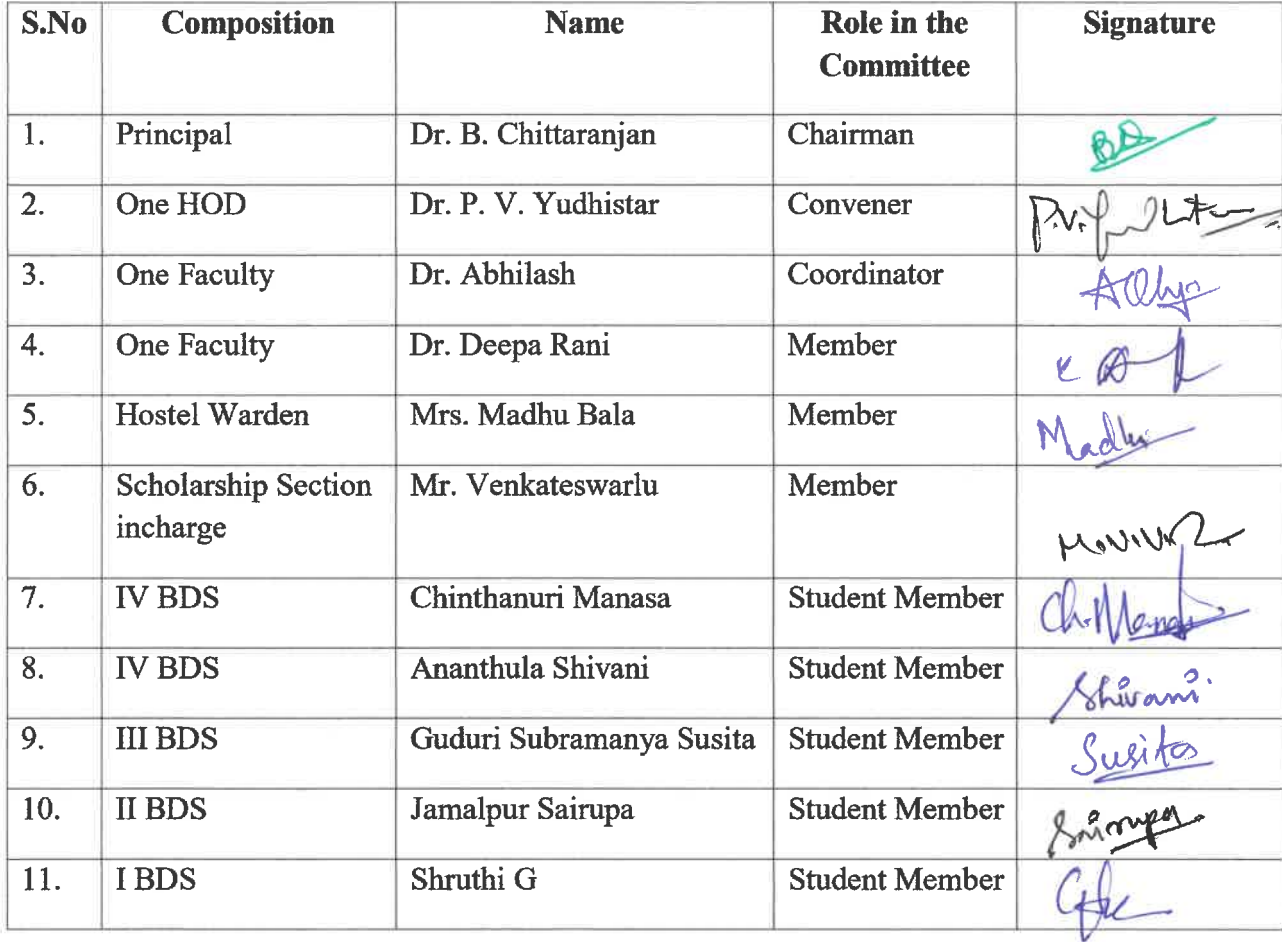 S.No Composition Name Role in the Committee Signature
1. Principal Dr. B. Chittaranjan Chairman
2. One HOD Dr. P. V. Yudhistar Convener P.V.
3. One Faculty Dr. Abhilash Coordinator
4. One Faculty Dr. Deepa Rani Member
5. Hostel Warden Mrs. Madhu Bala Member Madhu
6. Scholarship Section incharge Mr. Venkateswarlu Member
7. IV BDS Chinthanuri Manasa Student Member Ch.Manasa
8. IV BDS Ananthula Shivani Student Member Shivani
9. III BDS Guduri Subramanya Susita Student Member Susita
10. II BDS Jamalpur Sairupa Student Member Sairupa
11. I BDS Shruthi G Student Member